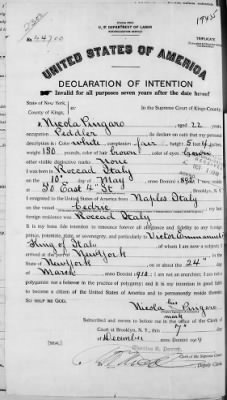 U. S. DEPARTMENT OF LABOR
TRIPLICATE
No. 44700
UNITED STATES OF AMERICA
DECLARATION OF INTENTION
Invalid for all purposes seven years after the date hereof
State of New York,
County of Kings,
In the Supreme Court of Kings County.
I, Nicola Purgaro, aged 22 years,
occupation Peddler, do declare on oath that my personal
description is: Color white, complexion fair, height 5 feet
weight 130 pounds, color of hair brown, color of eyes
other visible distinctive marks None
I was born in Roccad Italy
on the 10th day of May, anno Domini
at 90 East 4" St, Brooklyn, N. Y.
I emigrated to the United States of America from Naples Italy
on the vessel Cedric
foreign residence was Roccad Italy
It is my bona fide intention to renounce forever all allegiance and fidelity to any foreign
prince, potentate, state, or sovereignty, and particularly to Victor Emmanuel
King of Italy, of whom I am now a subject; I
arrived at the port of New York, in the
State of New York, on or about the 24" day
of March, anno Domini 1910; I am not an anarchist; I am not a
polygamist nor a believer in the practice of polygamy; and it is my intention in good faith
to become a citizen of the United States of America and to permanently reside therein:
SO HELP ME GOD.
Nicola his Purgaro
mark
Subscribed and sworn to before me in the office of the Clerk of
Court at Brooklyn, N. Y., this 7" day
of December, anno Domini
[SEAL]
Clerk of the Supreme Court.
Deputy Clerk